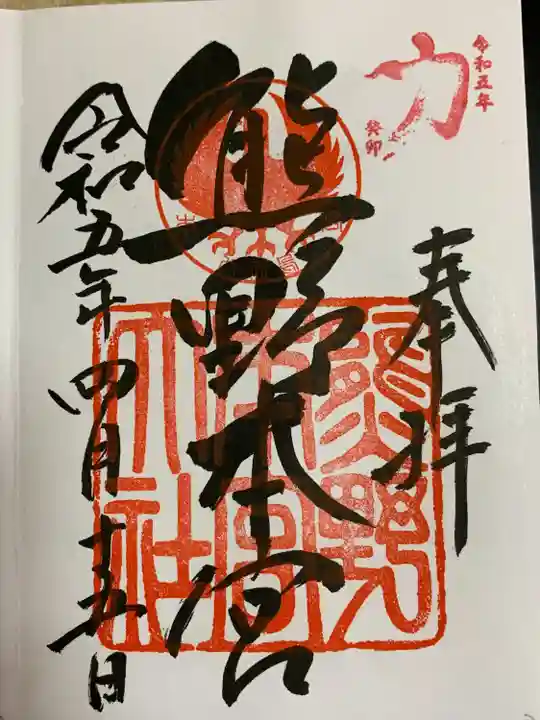 令和五年
力
癸卯
奉拝
熊野本宮
熊野本宮大社
令和五年四月十五日